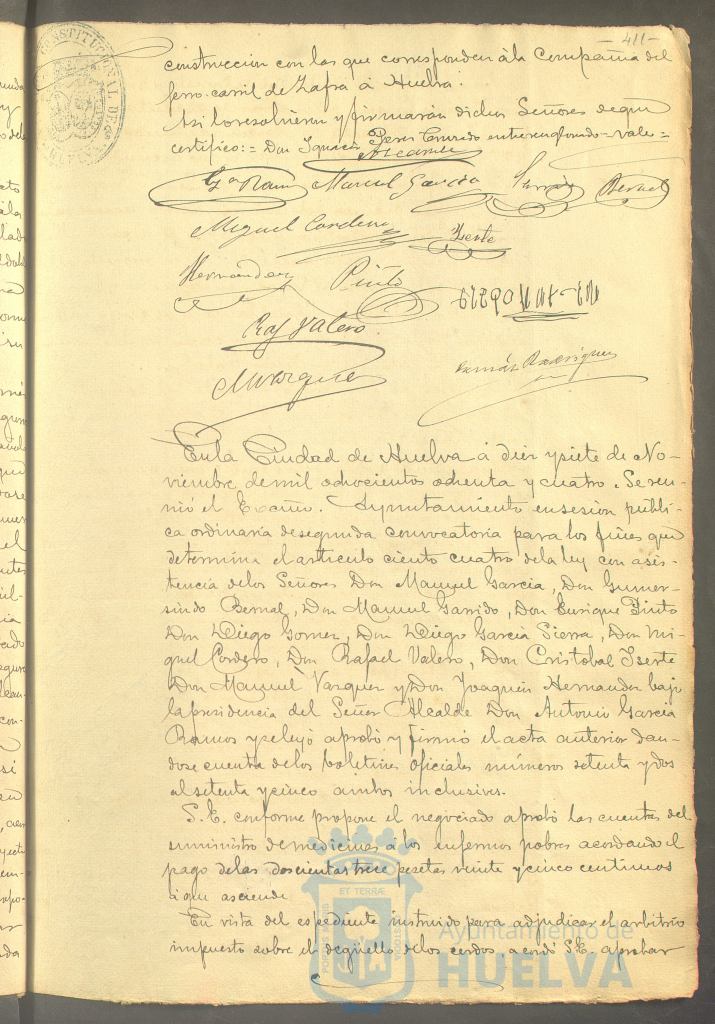 -411-
construccion con las que corresponden á la Compañia del
ferro-carril de Zafra á Huelva.
Asi lo resolvieron y firmarán dichos Señores de que
certifico:= Don Ignacio Perez entrerenglonado=vale=
Gª Ramos Manuel Garcia Bernal
Miguel Cordero Iserte
Hernandez Pinto
Raf Valero
M Vazquez Tomás Rodriguez
En la Ciudad de Huelva á diez y siete de No-
viembre de mil ochocientos ochenta y cuatro. Se reu-
nió el Excmo. Ayuntamiento en sesion públi-
ca ordinaria de segunda convocatoria para los fines que
determina el articulo ciento cuatro de la ley con asis-
tencia de los Señores Don Manuel Garcia, Don Gumer-
sindo Bernal, Don Manuel Garrido, Don Enrique Pinto
Don Diego Gomez, Don Diego Garcia Sierra, Don Mi-
guel Cordero, Don Rafael Valero, Don Cristobal Iserte
Don Manuel Vazquez y Don Joaquin Hernandez bajo
la presidencia del Señor Alcalde Don Antonio Garcia
Ramos y se leyó aprobó y firmó el acta anterior dan-
dose cuenta de los boletines oficiales numeros setenta y dos
al setenta y cinco ambos inclusives.
S.E. conforme propone el negociado aprobó las cuentas del
suministro de medicinas á los enfermos pobres acordando el
pago de las doscientas trece pesetas veinte y cinco centimos
á que asciende.
En vista del espediente instruido para adjudicar el arbitrio
impuesto sobre el degüello de los cerdos, acordó S.E. aprobar
Ayuntamiento de
HUELVA